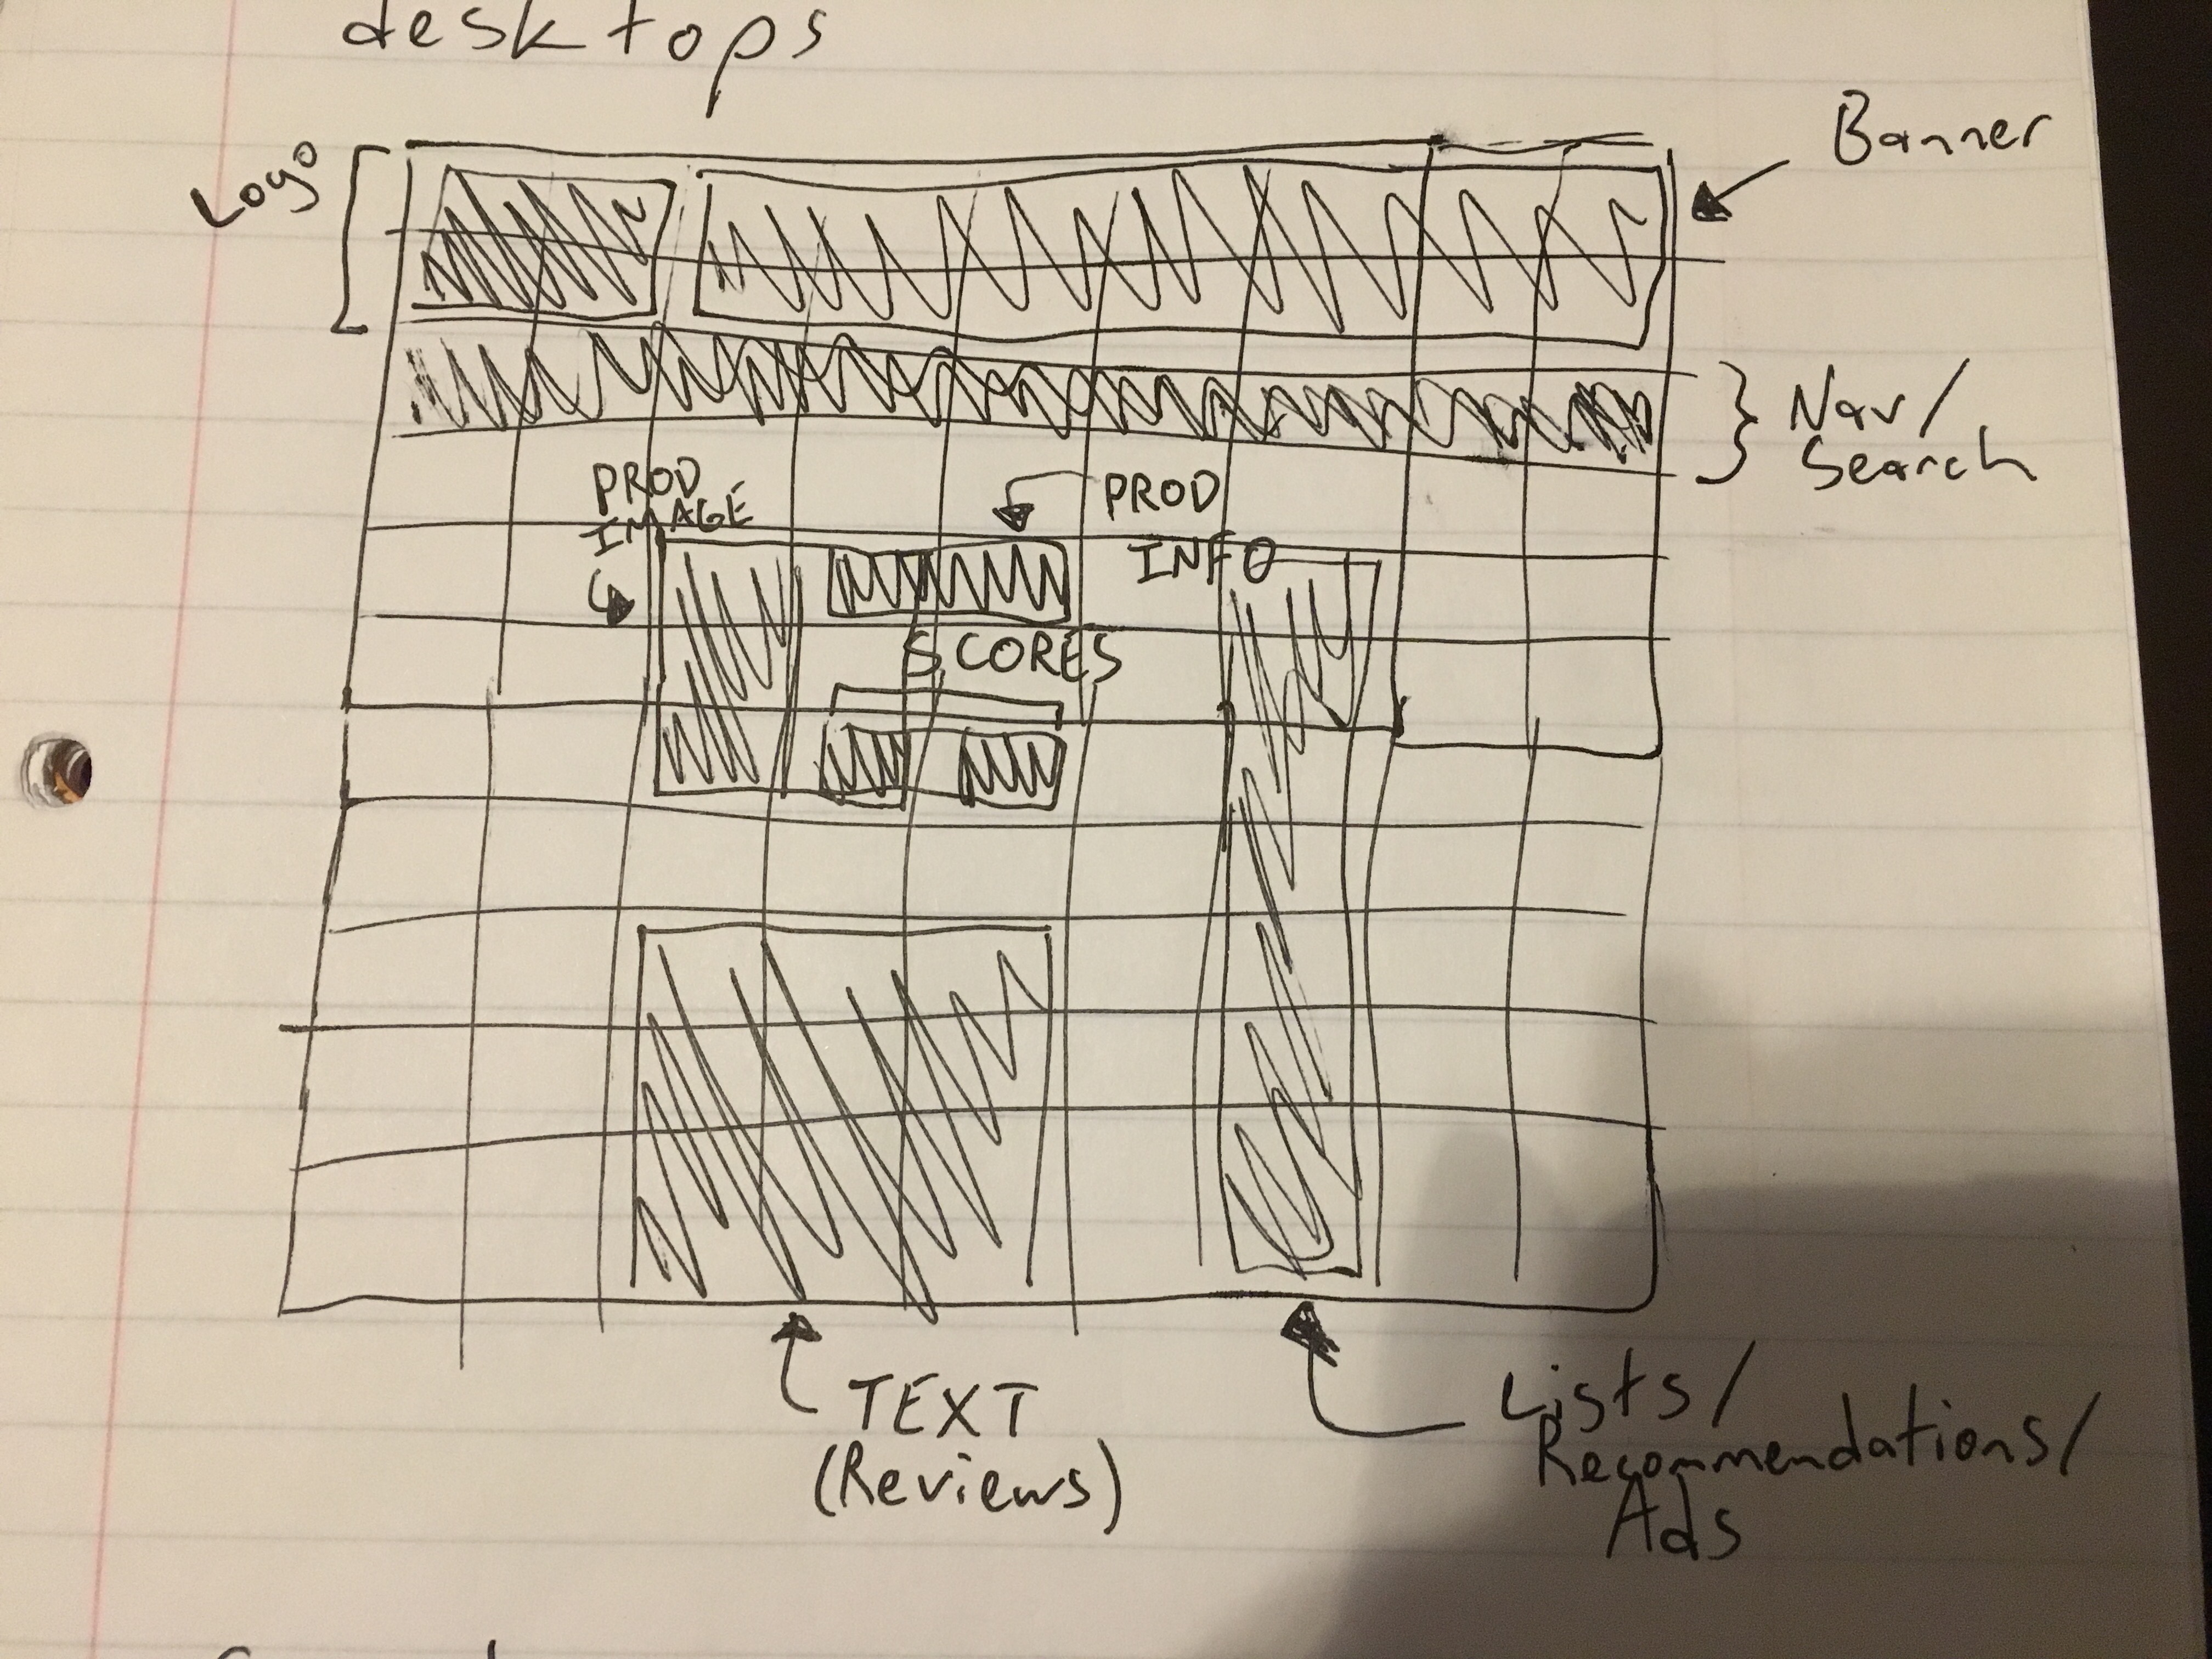 desktops
Banner
Logo
Nav/
Search
PROD
IMAGE
PROD
INFO
SCORES
TEXT
(Reviews)
Lists/
Recommendations/
Ads